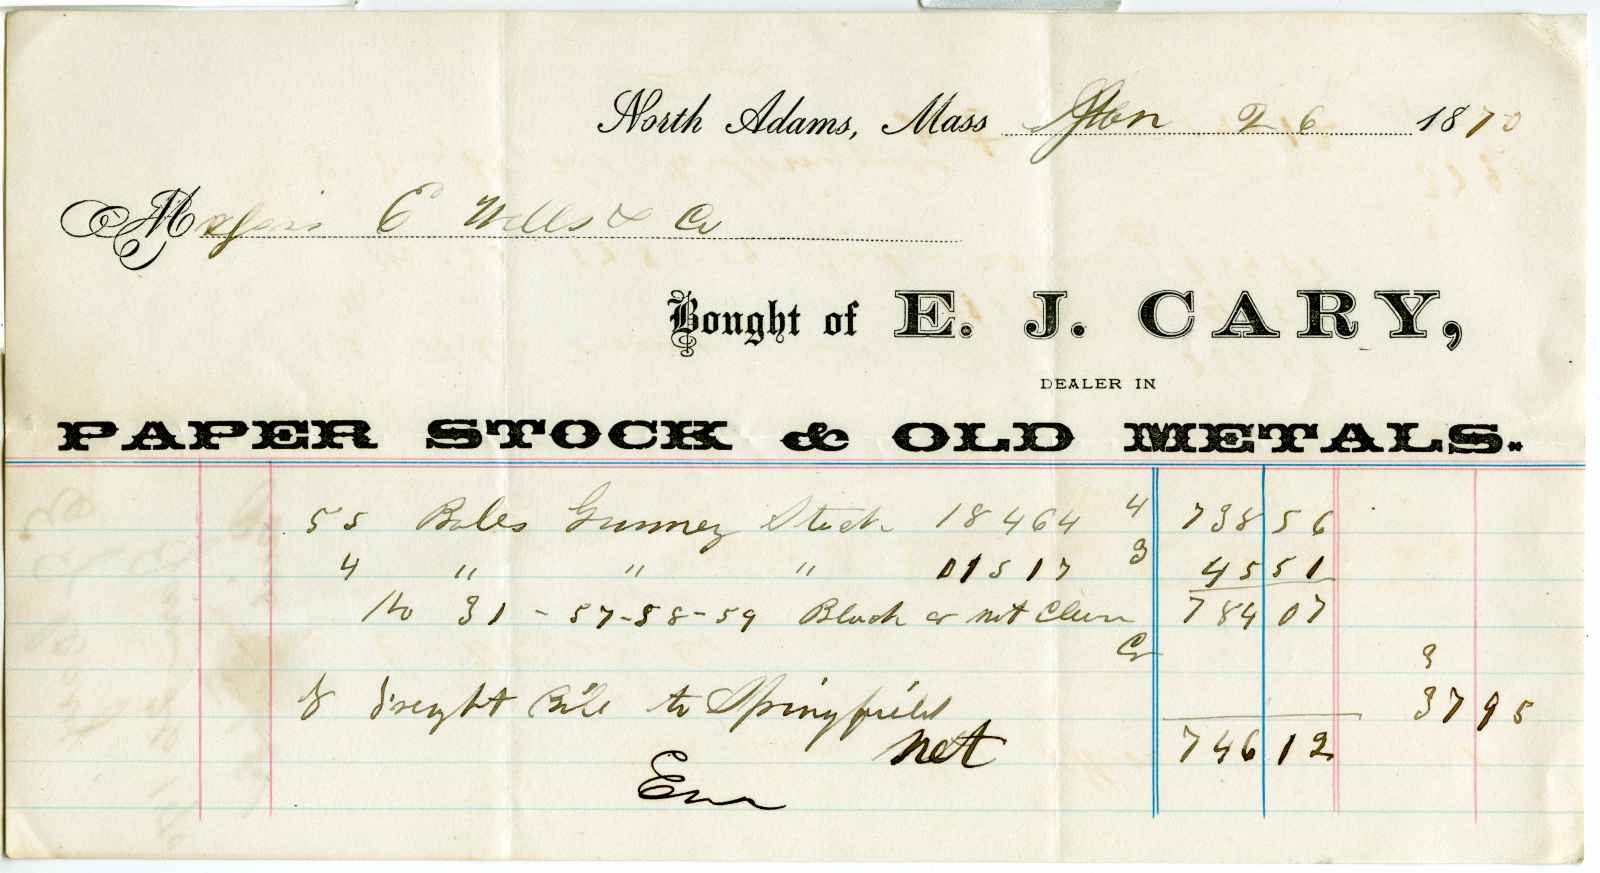 North Adams, Mass 26 1870
Messrs E Wells & Co
Bought of E. J. CARY,
DEALER IN
PAPER STOCK & OLD METALS.
55 Bales Gunney Stock 18464 4 738 56
4 " " " 01517 3 45 51
No 31 - 57 - 58 - 59 Black or not Clean 784 07
Cr 3
freight Bill to Springfield 37 95
net 746 12